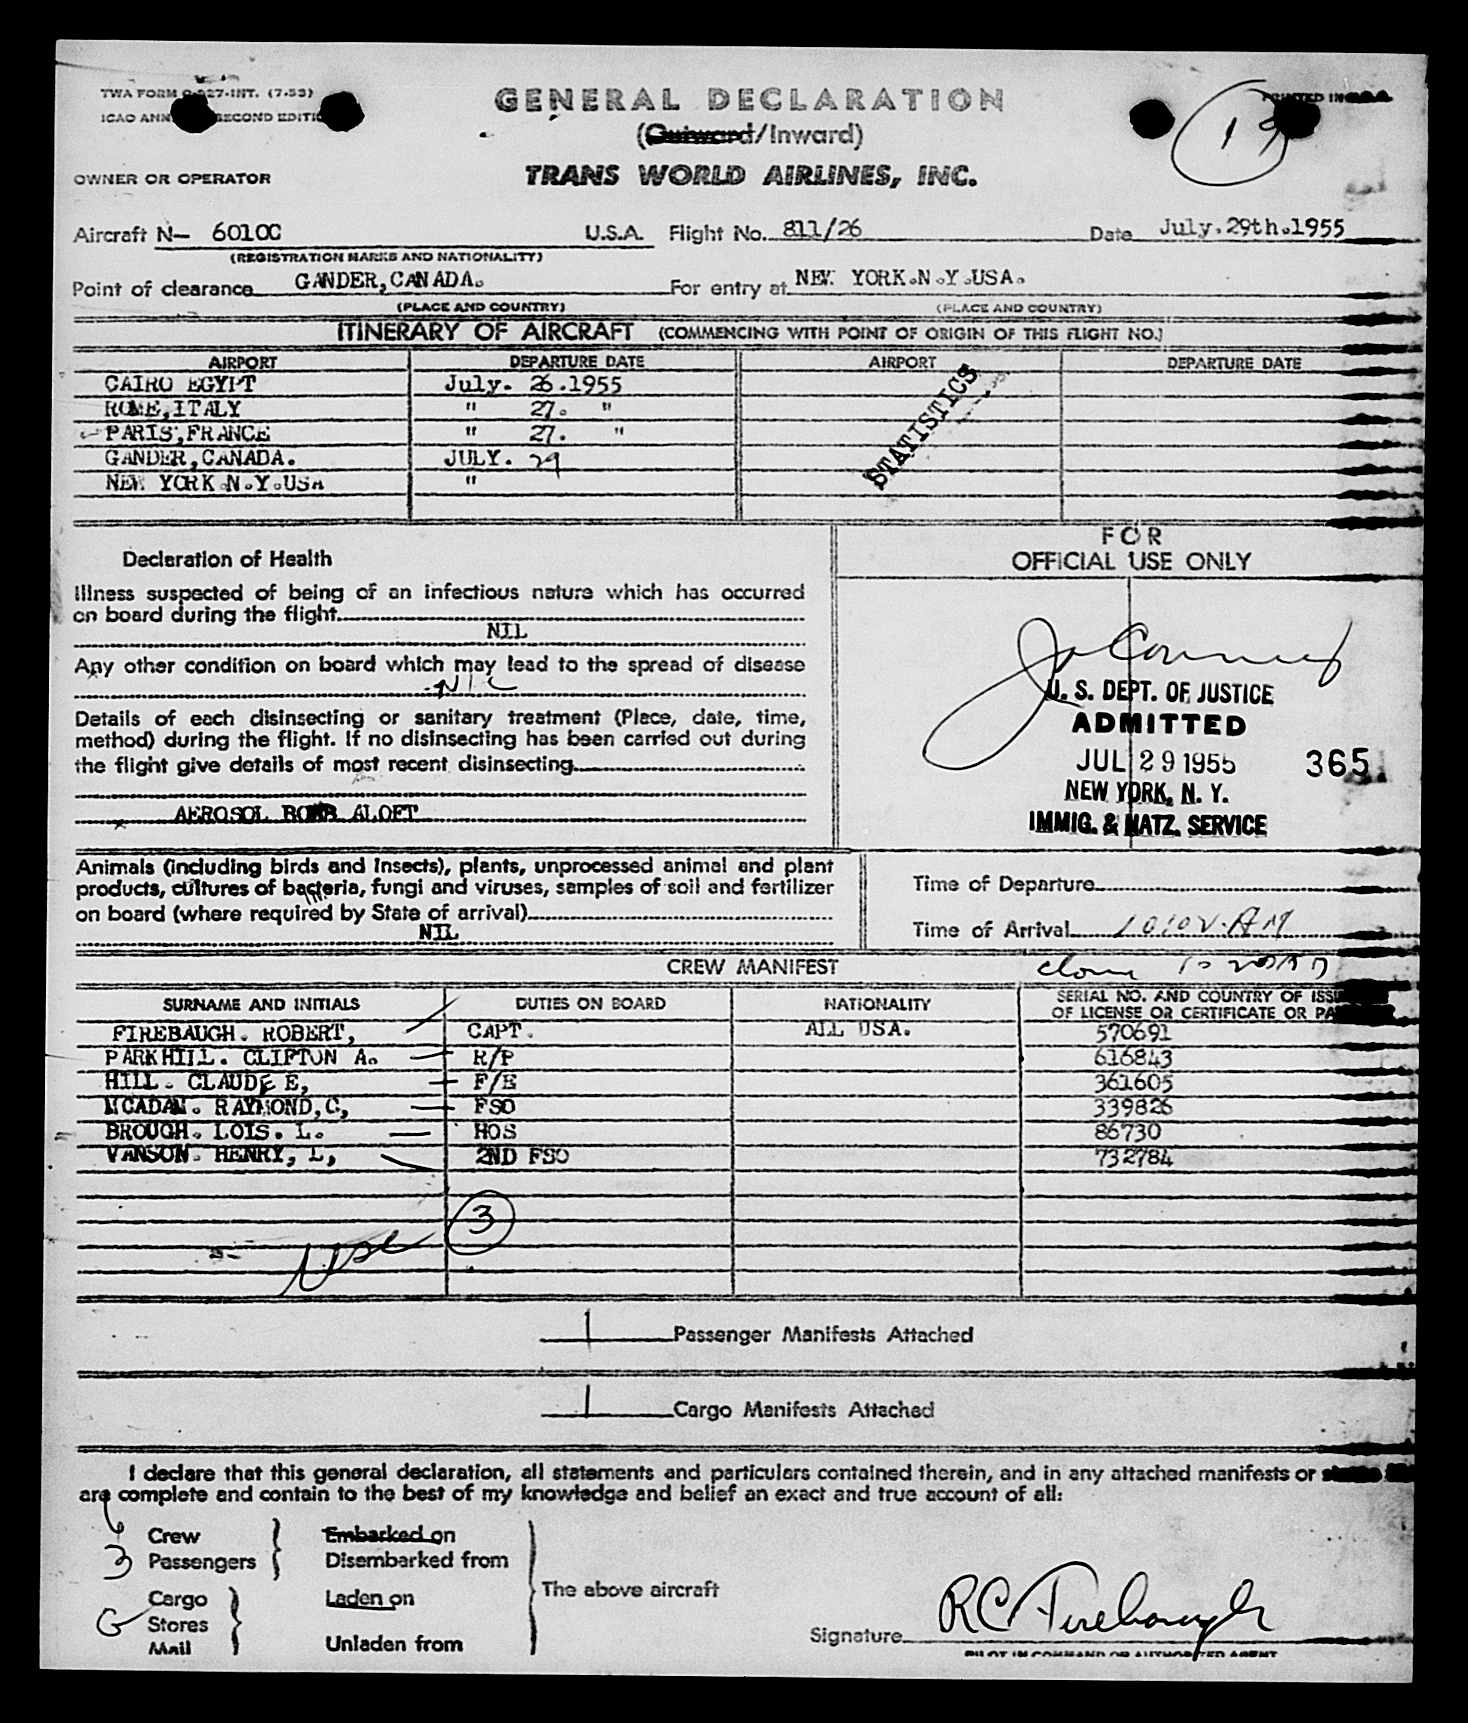 TWA FORM 27-INT. (7-53)
ICAO ANN SECOND EDITI
GENERAL DECLARATION
(Outward/Inward)
PRINTED IN U.S.A.
19
OWNER OR OPERATOR
TRANS WORLD AIRLINES, INC.
Aircraft N- 6010C U.S.A. Flight No. 811/26 Date July.29th.1955
(REGISTRATION MARKS AND NATIONALITY)
Point of clearance GANDER,CANADA. For entry at NEW YORK.N.Y.USA.
(PLACE AND COUNTRY) (PLACE AND COUNTRY)
ITINERARY OF AIRCRAFT (COMMENCING WITH POINT OF ORIGIN OF THIS FLIGHT NO.)
AIRPORT DEPARTURE DATE AIRPORT DEPARTURE DATE
CAIRO EGYPT July. 26.1955
ROME,ITALY " 27. "
PARIS,FRANCE " 27. "
GANDER,CANADA. JULY. 29
NEW YORK.N.Y.USA "
STATISTICS
FOR
OFFICIAL USE ONLY
Declaration of Health
Illness suspected of being of an infectious nature which has occurred
on board during the flight
NIL
Any other condition on board which may lead to the spread of disease
NIL
Details of each disinsecting or sanitary treatment (Place, date, time,
method) during the flight. If no disinsecting has been carried out during
the flight give details of most recent disinsecting
AEROSOL BOMB ALOFT
U. S. DEPT. OF JUSTICE
ADMITTED
JUL 29 1955 365
NEW YORK, N. Y.
IMMIG. & NATZ. SERVICE
Animals (including birds and insects), plants, unprocessed animal and plant
products, cultures of bacteria, fungi and viruses, samples of soil and fertilizer
on board (where required by State of arrival)
NIL
Time of Departure
Time of Arrival AM
CREW MANIFEST
SURNAME AND INITIALS DUTIES ON BOARD NATIONALITY SERIAL NO. AND COUNTRY OF ISSU
OF LICENSE OR CERTIFICATE OR PA
FIREBAUGH. ROBERT, CAPT. ALL USA. 570691
PARKHILL. CLIFTON A. R/P 616843
HILL. CLAUDE E, F/E 361605
MCADAM. RAYMOND,C, FSO 339826
BROUGH. LOIS. L. HOS 86730
VANSON. HENRY, L, 2ND FSO 732784
3
USC
1 Passenger Manifests Attached
1 Cargo Manifests Attached
I declare that this general declaration, all statements and particulars contained therein, and in any attached manifests or
are complete and contain to the best of my knowledge and belief an exact and true account of all:
6 Crew Embarked on
3 Passengers Disembarked from
Cargo Laden on
The above aircraft
Stores
Mail Unladen from
Signature RC Firebaugh
PILOT IN COMMAND OR AUTHORIZED AGENT